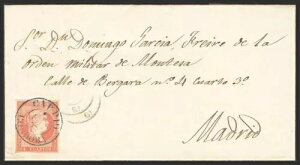 S.or Dn. Domingo Garcia, Freire de la
orden militar de Montesa
Calle de Bergara nº 24 Cuarto 3º
Madrid
4 CUARTOS